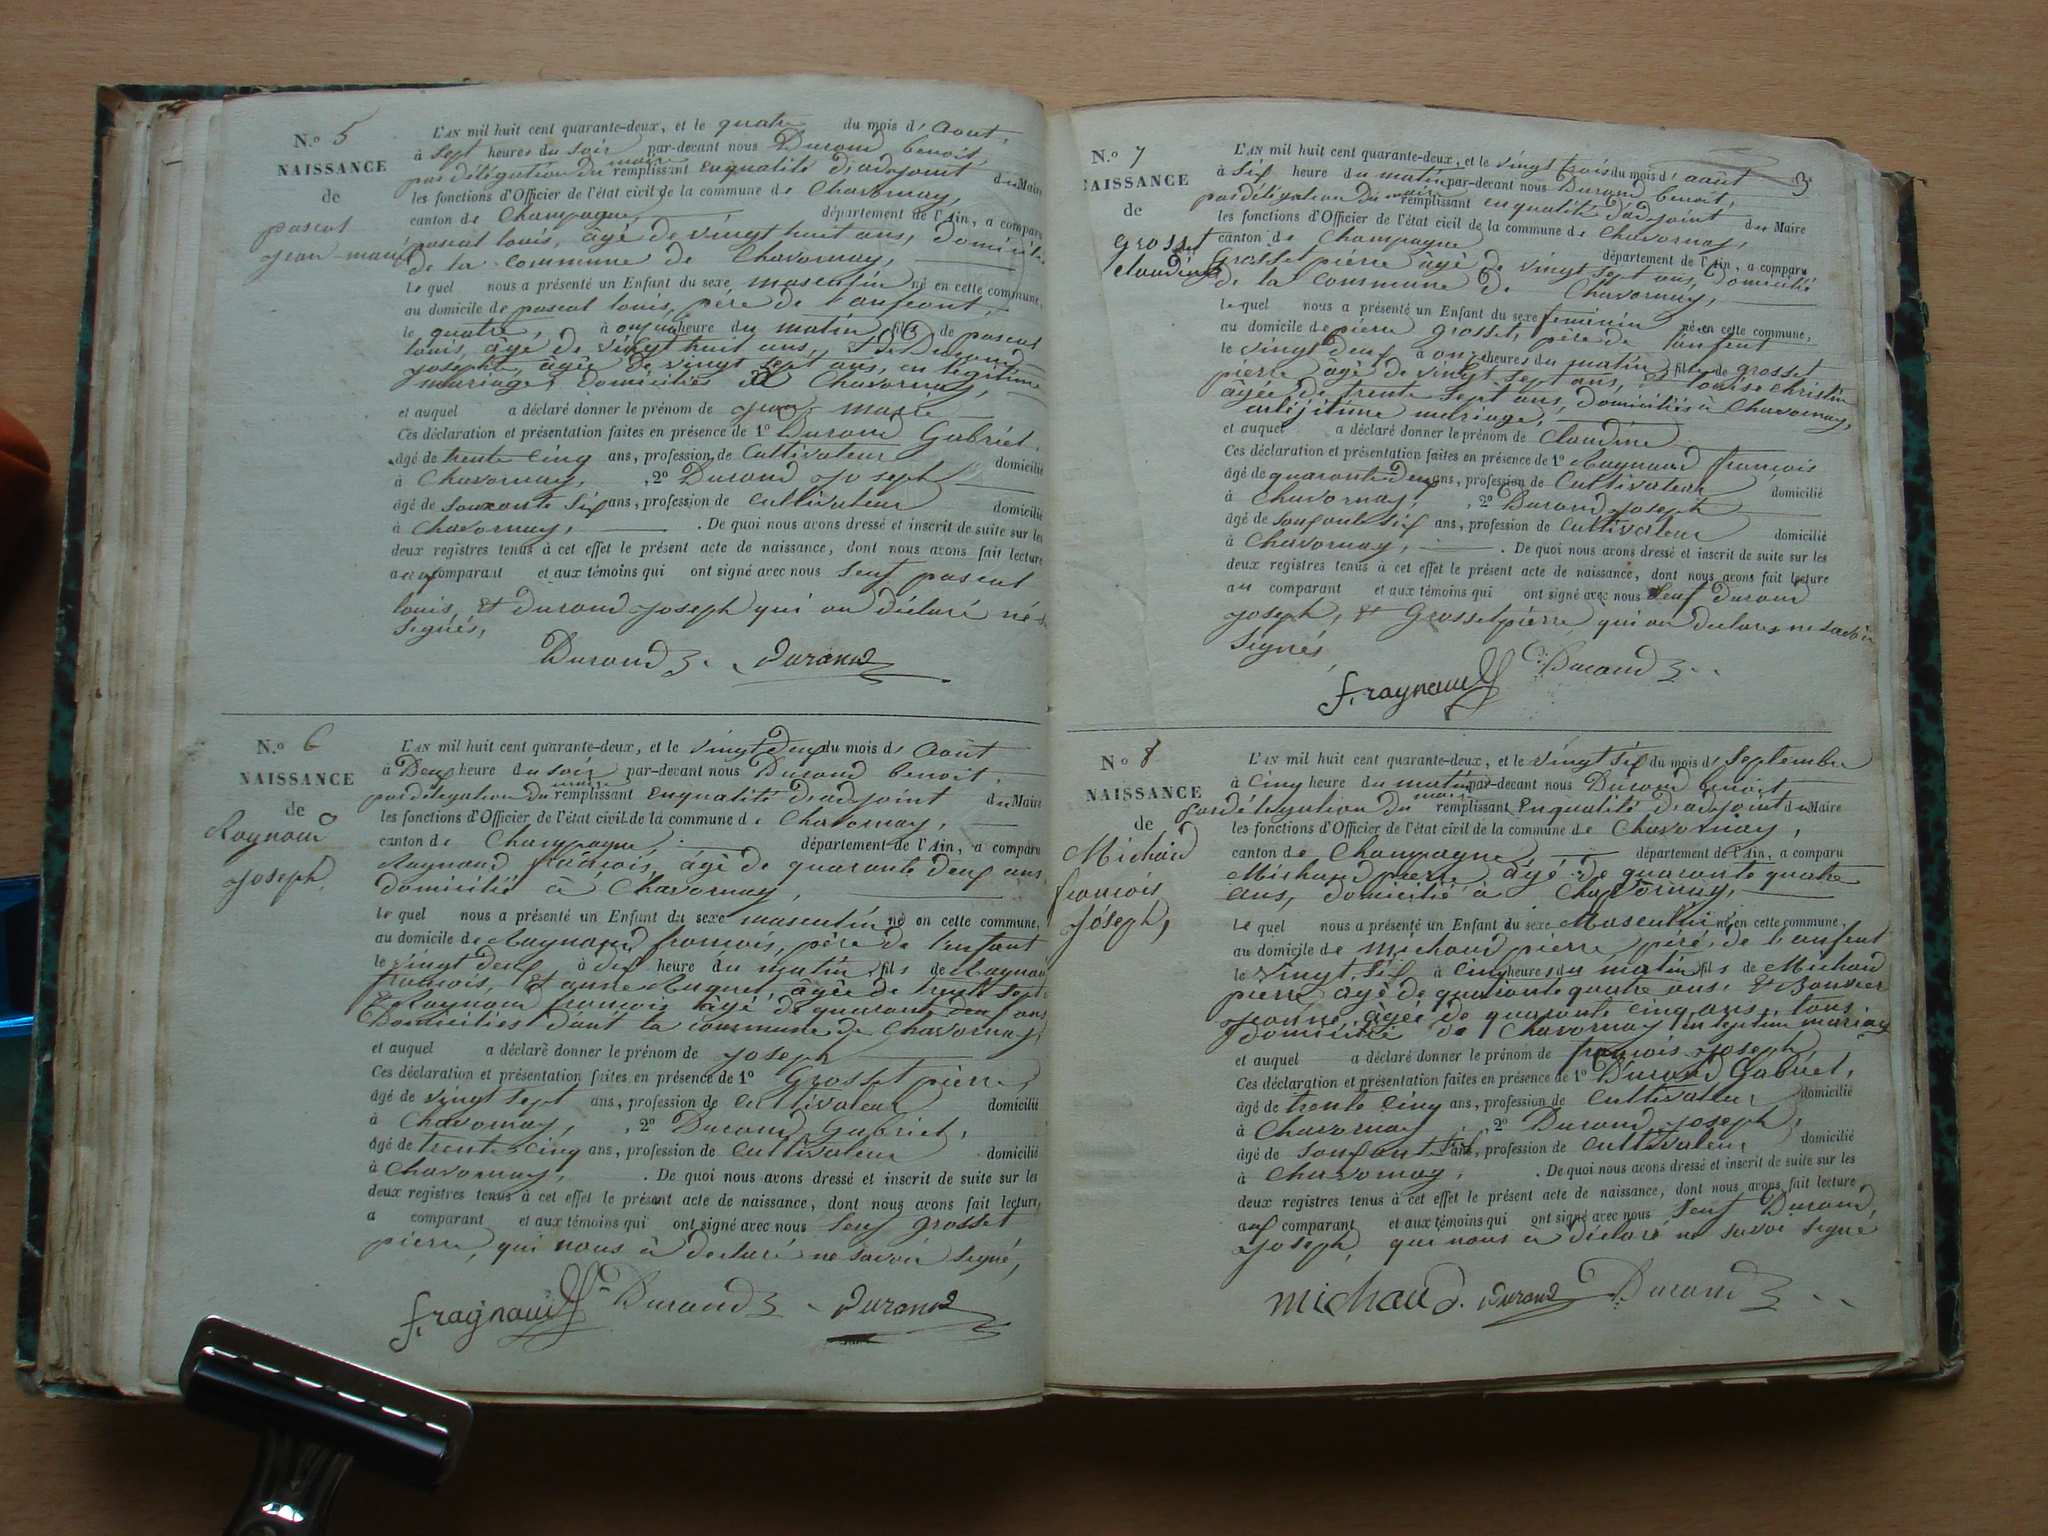 N.o 5
NAISSANCE
de
pascal
jean-marie
L'AN mil huit cent quarante-deux, et le quatre du mois d' aout,
à sept heures du soir par-devant nous Durand benoit,
par délégation du maire remplissant enqualité d'adjoint du Maire
les fonctions d'Officier de l'état civil de la commune de Chavornay,
canton de Champagne, département de l'Ain, a comparu
pascal louis, âgé de vingt huit ans, domicilié
de la commune de Chavornay,
le quel nous a présenté un Enfant du sexe masculin né en cette commune,
au domicile de pascal louis, père de l'anfeant,
le quatre, à onze heure du matin fils de pascal
louis, âgé de vingt huit ans, & de Durand
josephte, âgée de vingt sept ans, en legitime
mariage, domiciliés à Chavornay,
et auquel a déclaré donner le prénom de jean marie
Ces déclaration et présentation faites en présence de 1º Durand Gabriel
âgé de trente cinq ans, profession de Cultivateur domicilié
à Chavornay, , 2º Durand joseph
âgé de souxante six ans, profession de Cultivateur domicilié
à Chavornay, . De quoi nous avons dressé et inscrit de suite sur les
deux registres tenus à cet effet le présent acte de naissance, dont nous avons fait lecture
aux comparant et aux témoins qui ont signé avec nous seuf pascal
louis, & Durand joseph qui on déclaré né
signés,
Durand durand
N.o 6
NAISSANCE
de
Raynaud
joseph,
L'AN mil huit cent quarante-deux, et le vingt deux du mois d' Août
à Deux heure du soir par-devant nous Durand benoit,
par délégation du maire remplissant enqualité d'adjoint du Maire
les fonctions d'Officier de l'état civil de la commune de Chavornay,
canton de Champagne département de l'Ain, a comparu
Raynaud françois, âgé de quarante deux ans
domicilié à Chavornay,
le quel nous a présenté un Enfant du sexe masculin né en cette commune,
au domicile de Raynaud françois, père de l'enfant
le vingt deux à dix heure du matin fils de Raynaud
françois, & anne Auguet, âgée de trente sept
& Raynaud françois âgé de quarant deux ans
Domiciliés dant la commune de Chavornay,
et auquel a déclaré donner le prénom de joseph
Ces déclaration et présentation faites en présence de 1º Grosset pierre
âgé de vingt sept ans, profession de cultivateur domicilié
à Chavornay, , 2º Durand Gabriel,
âgé de trente cinq ans, profession de Cultivateur domicilié
à Chavornay, . De quoi nous avons dressé et inscrit de suite sur les
deux registres tenus à cet effet le présent acte de naissance, dont nous avons fait lecture,
a comparant et aux témoins qui ont signé avec nous seuf grosset
pierre, qui nous à declaré ne savoir segné,
f. raynaud Durand durand
3
N.o 7
NAISSANCE
de
grosset
Claudine
L'AN mil huit cent quarante-deux, et le vingt trois du mois d' août
à six heure du matin par-devant nous Durand benoit,
par délégation du maire remplissant enqualité d'adjoint du Maire
les fonctions d'Officier de l'état civil de la commune de Chavornay,
canton de Champagne département de l'Ain, a comparu
Grosset pierre âgé de vingt sept ans, domicilié
de la commune de Chavornay,
le quel nous a présenté un Enfant du sexe feminin né en cette commune,
au domicile de pierre grosset, père de lanfent
le vingt deux à onze heures du matin fille de grosset
pierre âgé de vingt sept ans, & louise christin
âgée de trente sept ans, domiciliés à Chavornay,
mariage,
et auquel a déclaré donner le prénom de Claudine
Ces déclaration et présentation faites en présence de 1º Raynaud françois
âgé de quarante deux ans, profession de Cultivateur domicilié
à Chavornay, , 2º Durand joseph
âgé de soixante six ans, profession de Cultivateur domicilié
à Chavornay, . De quoi nous avons dressé et inscrit de suite sur les
deux registres tenus à cet effet le présent acte de naissance, dont nous avons fait lecture
au comparant et aux témoins qui ont signé avec nous seuf durand
joseph, & Grosset pierre, qui on declarés ne savoir
signés
f. raynaud Durand
N.o 8
NAISSANCE
de
Michaud
françois
joseph,
L'AN mil huit cent quarante-deux, et le vingt six du mois d' septembre
à cinq heure du matin par-devant nous Durand benoit
par délégation du maire remplissant enqualité d'adjoint du Maire
les fonctions d'Officier de l'état civil de la commune de Chavornay,
canton de Champagne département de l'Ain, a comparu
Michaud pierre âgé de quarante quatre
ans, domicilié à Chavornay,
le quel nous a présenté un Enfant du sexe Masculin né en cette commune,
au domicile de michaud pierre, père, de l'anfent
le vingt six à cinq heures du matin fils de Michaud
pierre âgé de quarante quatre ans, & Bouvier
jeanne, âgée de quarante cinq ans, tous
domicilié de Chavornay en legitim mariag
et auquel a déclaré donner le prénom de françois joseph
Ces déclaration et présentation faites en présence de 1º Durand Gabriel,
âgé de trente cinq ans, profession de Cultivateur domicilié
à Chavornay , 2º Durand joseph,
âgé de soixante six ans, profession de Cultivateur domicilié
à Chavornay, . De quoi nous avons dressé et inscrit de suite sur les
deux registres tenus à cet effet le présent acte de naissance, dont nous avons fait lecture
aux comparant et aux témoins qui ont signé avec nous seuf Durand,
joseph, qui nous à déclaré ne savoi segné
michaud. durand Durand